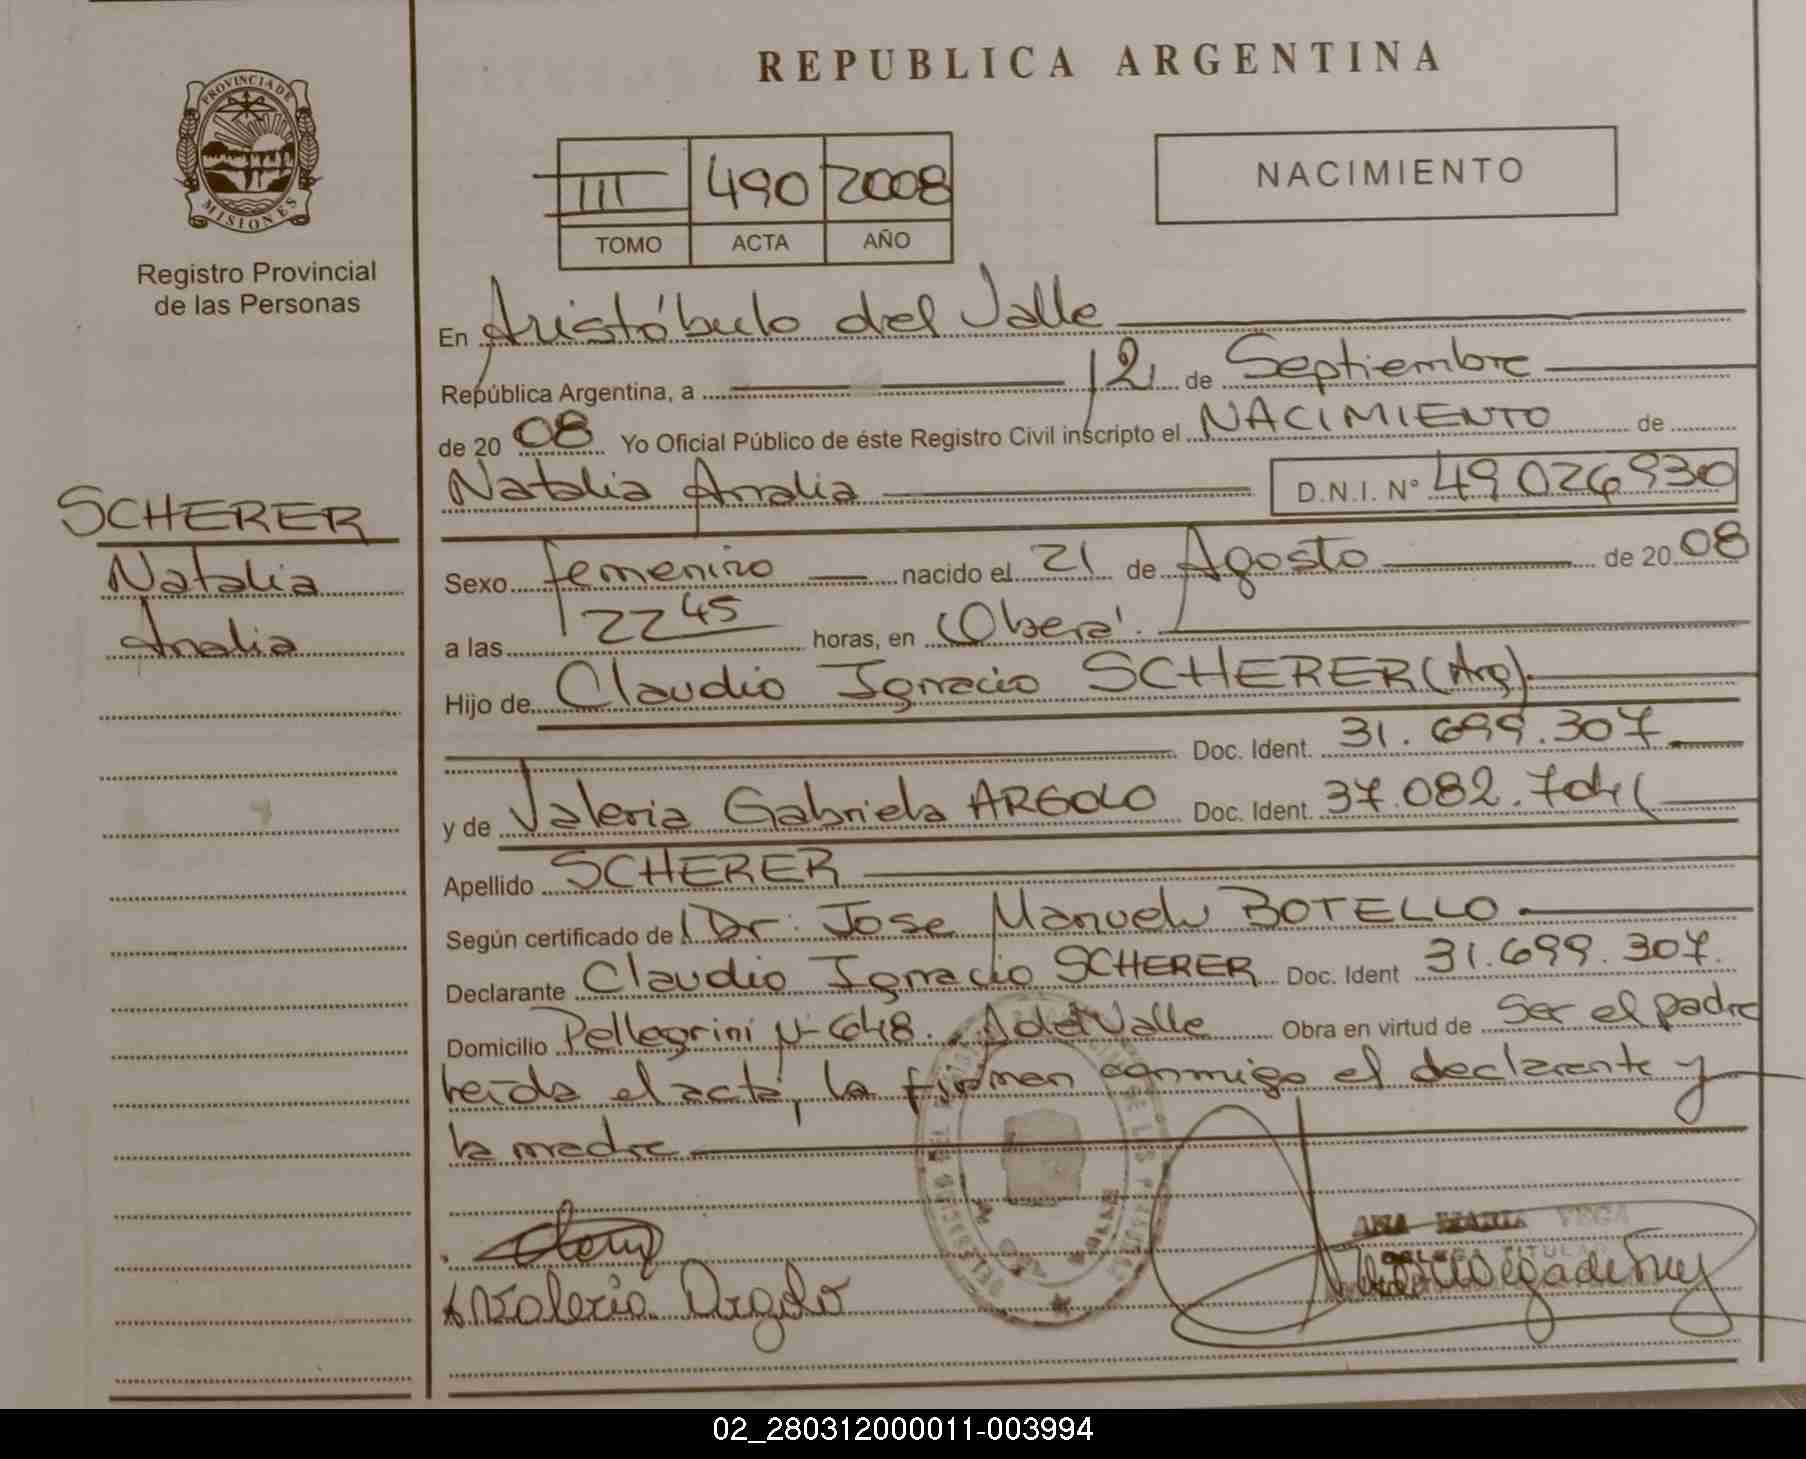 REPUBLICA ARGENTINA
PROVINCIA DE
MISIONES
Registro Provincial
de las Personas
NACIMIENTO
III 490 2008
TOMO ACTA AÑO
En Aristóbulo del Valle
República Argentina, a 12 de Septiembre
de 20 08 Yo Oficial Público de éste Registro Civil inscripto el NACIMIENTO de
Natalia Analia D.N.I. N° 49026930
SCHERER
Natalia
Analia
Sexo femenino nacido el 21 de Agosto de 20 08
a las 22 45 horas, en Oberá.
Hijo de Claudio Ignacio SCHERER (Arg)
Doc. Ident. 31.699.307
y de Valeria Gabriela ARGOLO Doc. Ident. 37.082.704
Apellido SCHERER
Según certificado de Dr. Jose Manuel BOTELLO
Declarante Claudio Ignacio SCHERER Doc. Ident 31.699.307.
Domicilio Pellegrini Nº 648. A del Valle Obra en virtud de Ser el padre
Leída el acta, la firman conmigo el declarante y
la madre
ANA MARIA VEGA
TITULAR
Valeria Argolo
02_280312000011-003994